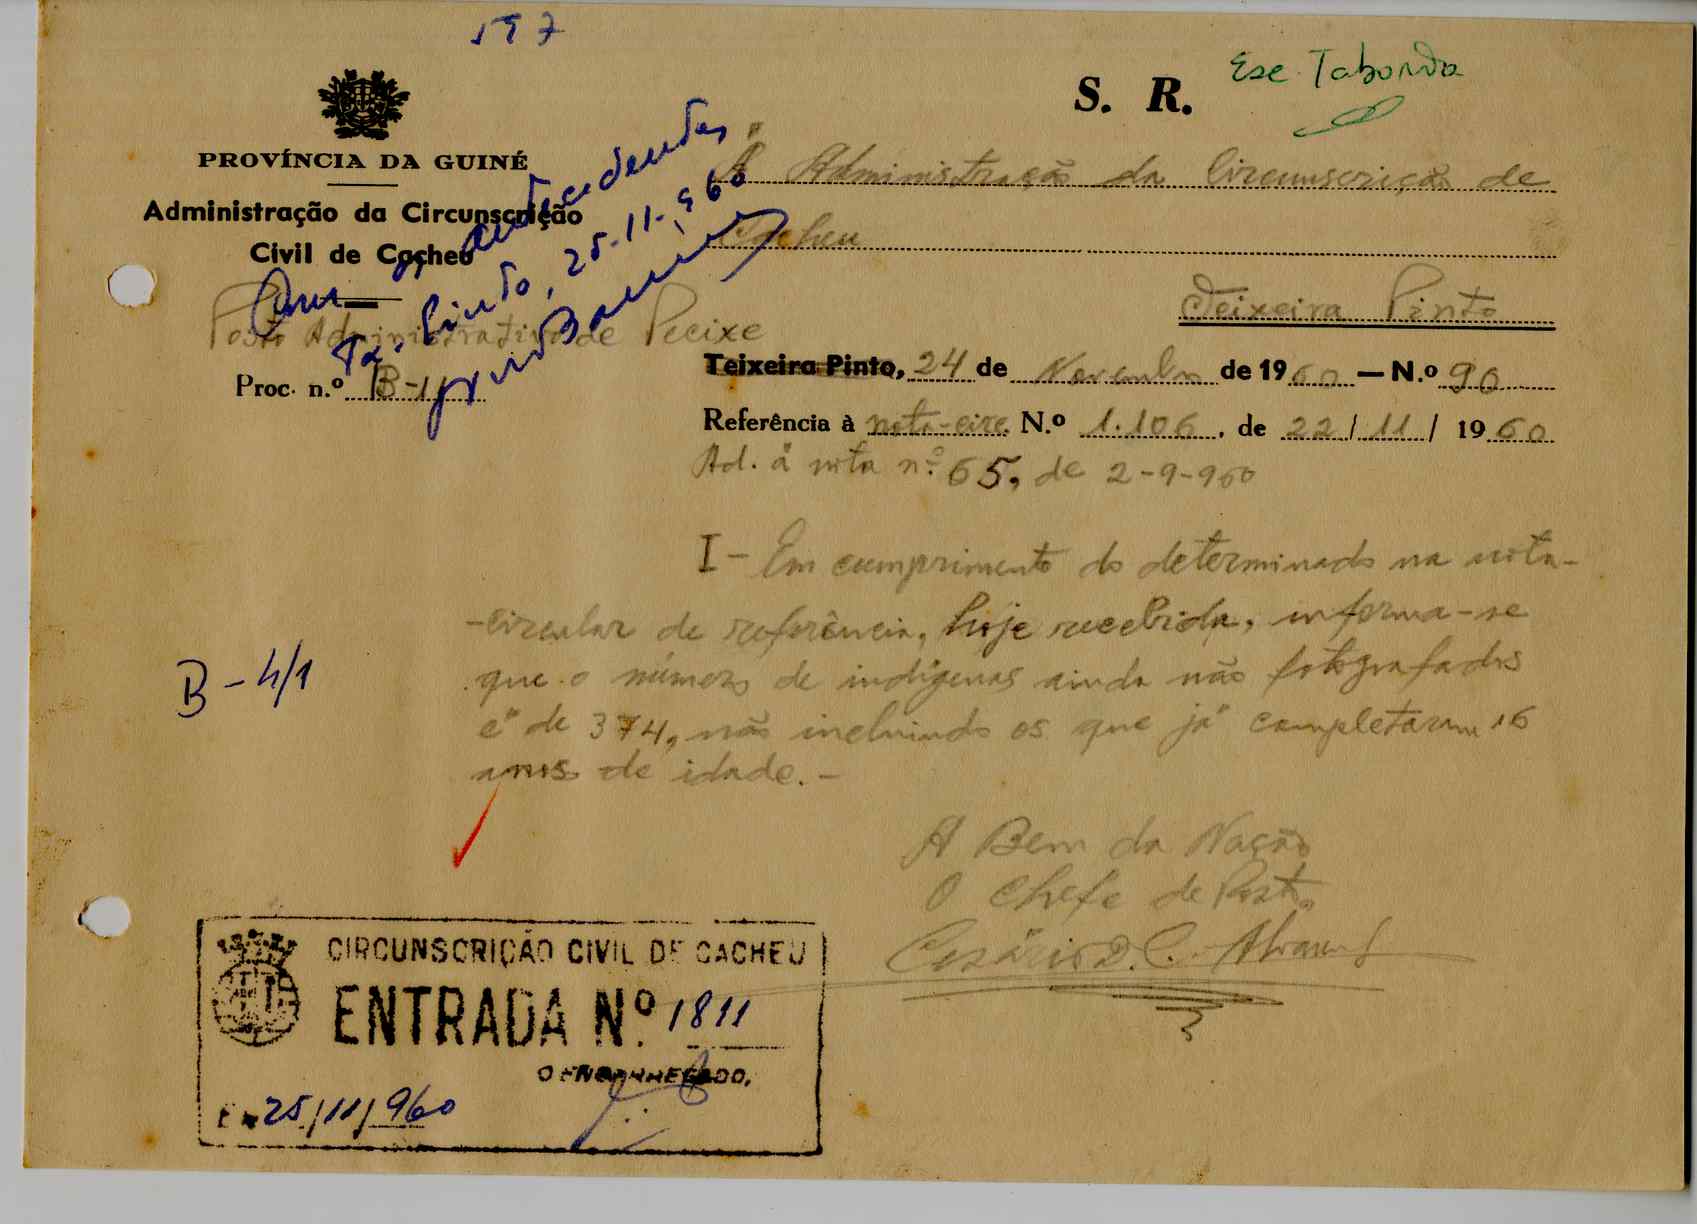 197
S. R.
Esc. Taborda
PROVÍNCIA DA GUINÉ
Administração da Circunscrição
Civil de Cacheu
Posto Administrativo de Pecixe
Proc. n.º B-4
antecedentes
Ta. Pinto, 25-11-960
À Administração da Circunscrição de
Cacheu
Teixeira Pinto
Teixeira Pinto, 24 de Novembro de 1960 — N.º 90
Referência à nota-circ. N.º 1.106, de 22/11/1960
Ad. à nota n.º 65, de 2-9-960
I - Em cumprimento do determinado na nota-
-circular de referência, hoje recebida, informa-se
que o número de indígenas ainda não fotografados
é de 374, não incluindo os que já completaram 16
anos de idade. -
B-4/1
A Bem da Nação
O Chefe de Posto
Cesário D. C. Alvarenga
CIRCUNSCRIÇÃO CIVIL DE CACHEU
ENTRADA N.º 1811
O ENCARREGADO,
Em 25/11/960